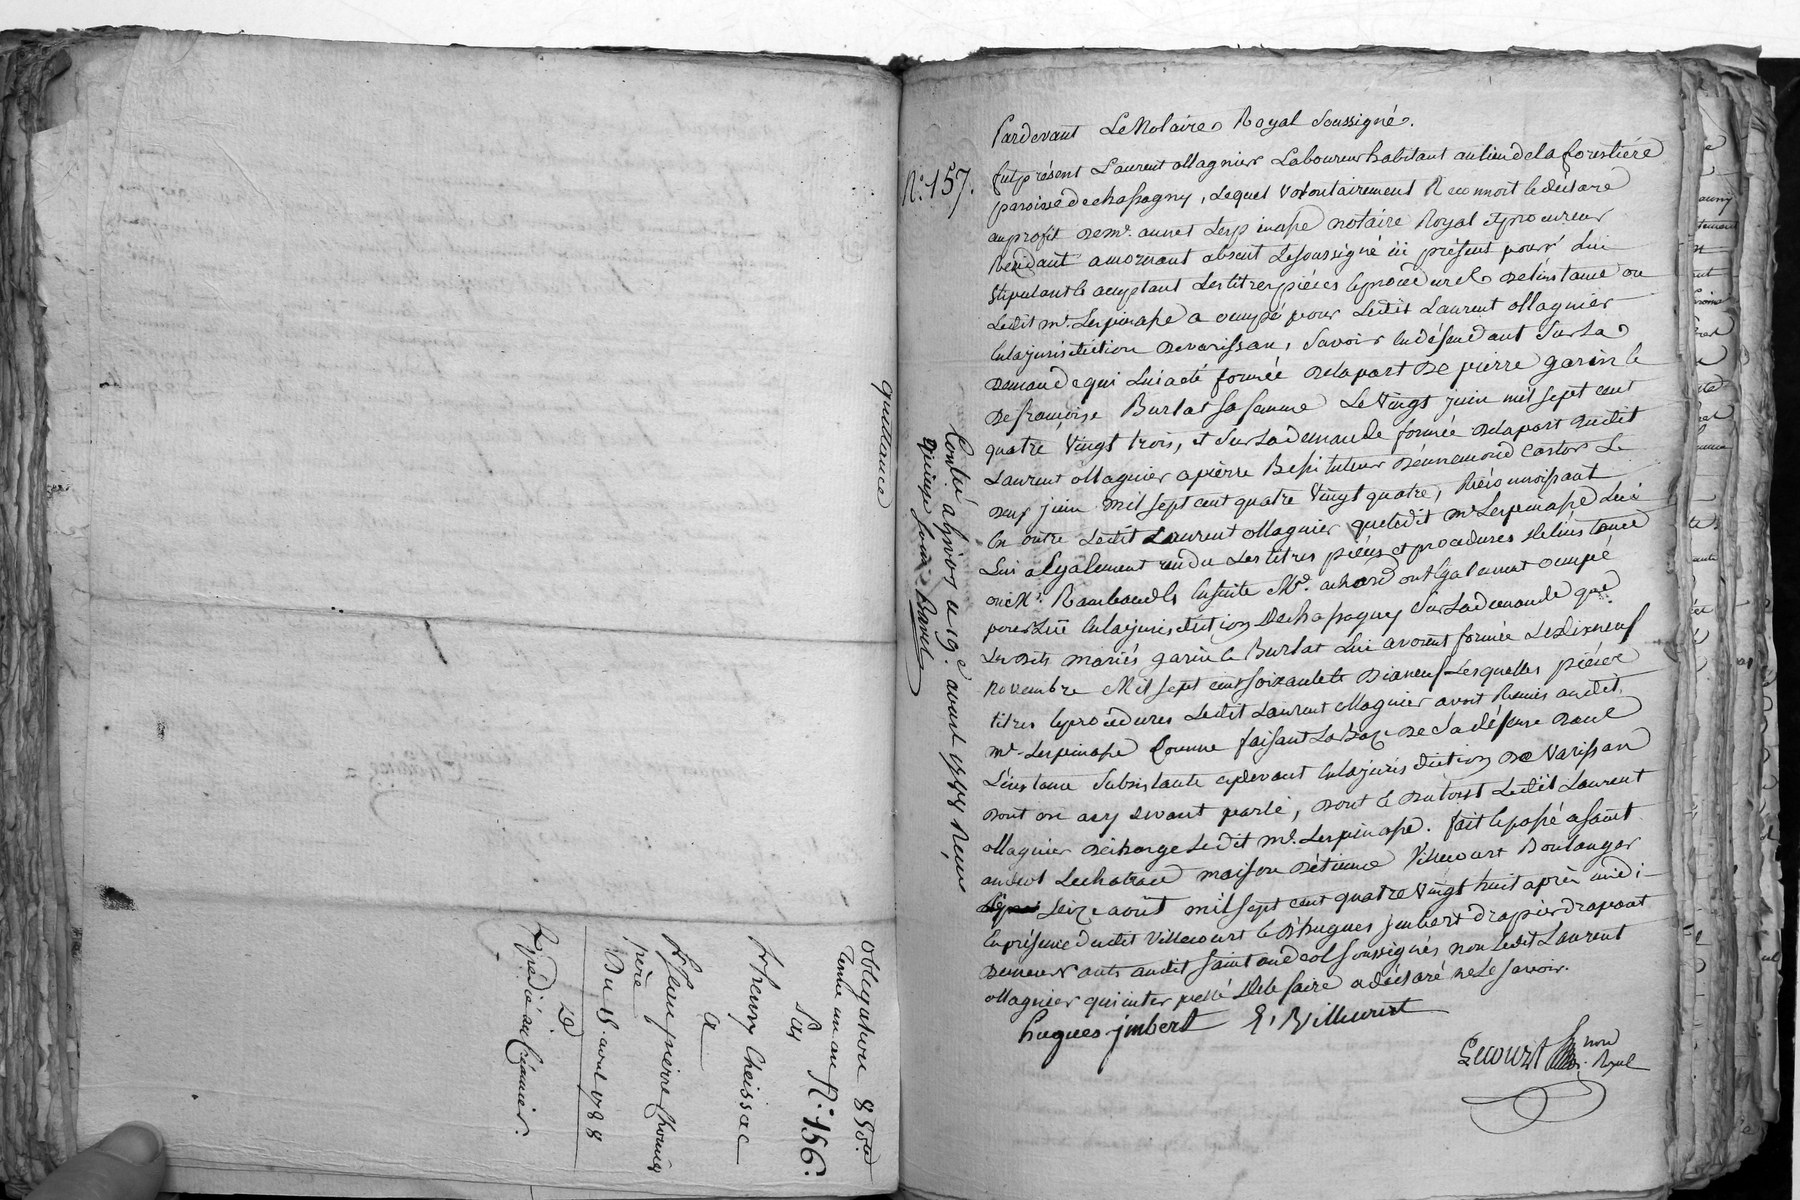 obligation 8 80tt
Terme un an N.° 156.
Par
Sr henry Cheissac
a
Sr Jean pierre Chomier
père
Du 18 avril 1788
Expedié au Créancier.
quittance
Pardevant Le Notaire Royal Soussigné.
N.° 157.
fut présent Laurent Magnier Laboureur habitant au lieu de la forestière
paroisse de chassagny, Lequel volontairement Reconnoit et déclare
au profit de Mr. annet Lespinasse notaire Royal et procureur
Residant a mornant absent Le soussigné ici présent pour Lui
stipulant et acceptant Les titres pièces et procédures de L'instance ou
Ledit Mr. Lespinasse a occupé pour Ledit Laurent Magnier
En la jurisdiction de varissan, Savoir En déffendant Sur La
demande qui Lui a été formée de la part De pierre garin et
de françoise Burlat sa femme Le vingt juin mil sept cent
quatre vingt trois, et Sur la demande formée de la part dudit
Laurent Magnier a pierre Bessi tuteur d'Ennemond Castor Le
deux juin mil sept cent quatre vingt quatre, Réconnoissant
En outre Ledit Laurent Magnier que Ledit Mr Lespinasse Lui
Lui a Egalement rendu Les titres pièces et procédures de L'instance
ou Mr. Rambaud et Ensuite Mr. achard ont Egalement occupé
pour Lui En la jurisdiction De chassagny Sur La demande que
Les dits mariés garin et Burlat Lui avoient formée Le dix neuf
novembre Mil sept cent soixante et Dix neuf Lesquelles pièces
titres et procédures Ledit Laurent Magnier avoit Remis audit
Mr. Lespinasse Comme faisant La Base De Sa défense Dans
L'instance Subsistante cydevant En la jurisdiction De Varissan
dont on a cy devant parlé, dont et du tout Ledit Laurent
Magnier décharge Ledit Mr. Lespinasse. fait et passé a saint
andeol Lechateau maison d'étienne Villecourt Boulanger
Le seize août mil sept cent quatre vingt huit après midi
En présence dudit Villecourt et d'hugues jmbert drapier drapant
Demeurants audit saint andeol soussignés non Ledit Laurent
Magnier qui interpellé de Le faire a déclaré ne Le savoir.
hugues jmbert E. Villecourt
Lecourt nore Royal
Contlé a givors Le 19.e aoust 1788 Reçu
quinze sous